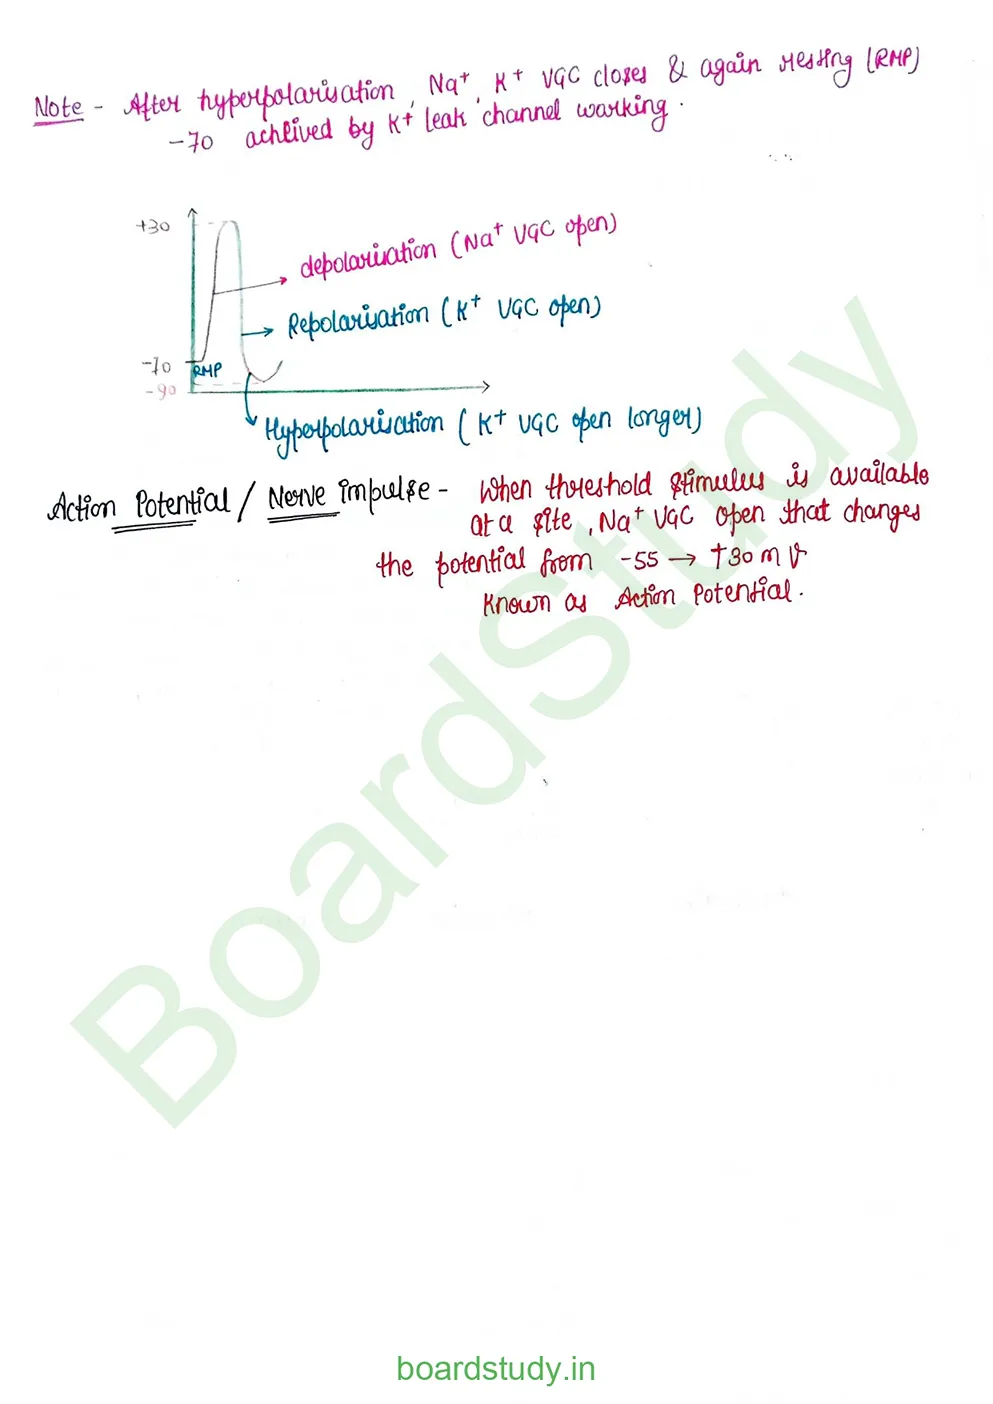 Note - After hyperpolarisation, Na⁺, K⁺ VGC closes & again resting (RMP)
-70 achived by K⁺ leak channel working.
+30
depolarisation (Na⁺ VGC open)
Repolarisation (K⁺ VGC open)
-70
RMP
-90
Hyperpolarisation (K⁺ VGC open longer)
Action Potential / Nerve impulse - When threshold stimulus is available
at a site, Na⁺ VGC open that changes
the potential from -55 → +30 mV
Known as Action Potential.
BoardStudy
boardstudy.in